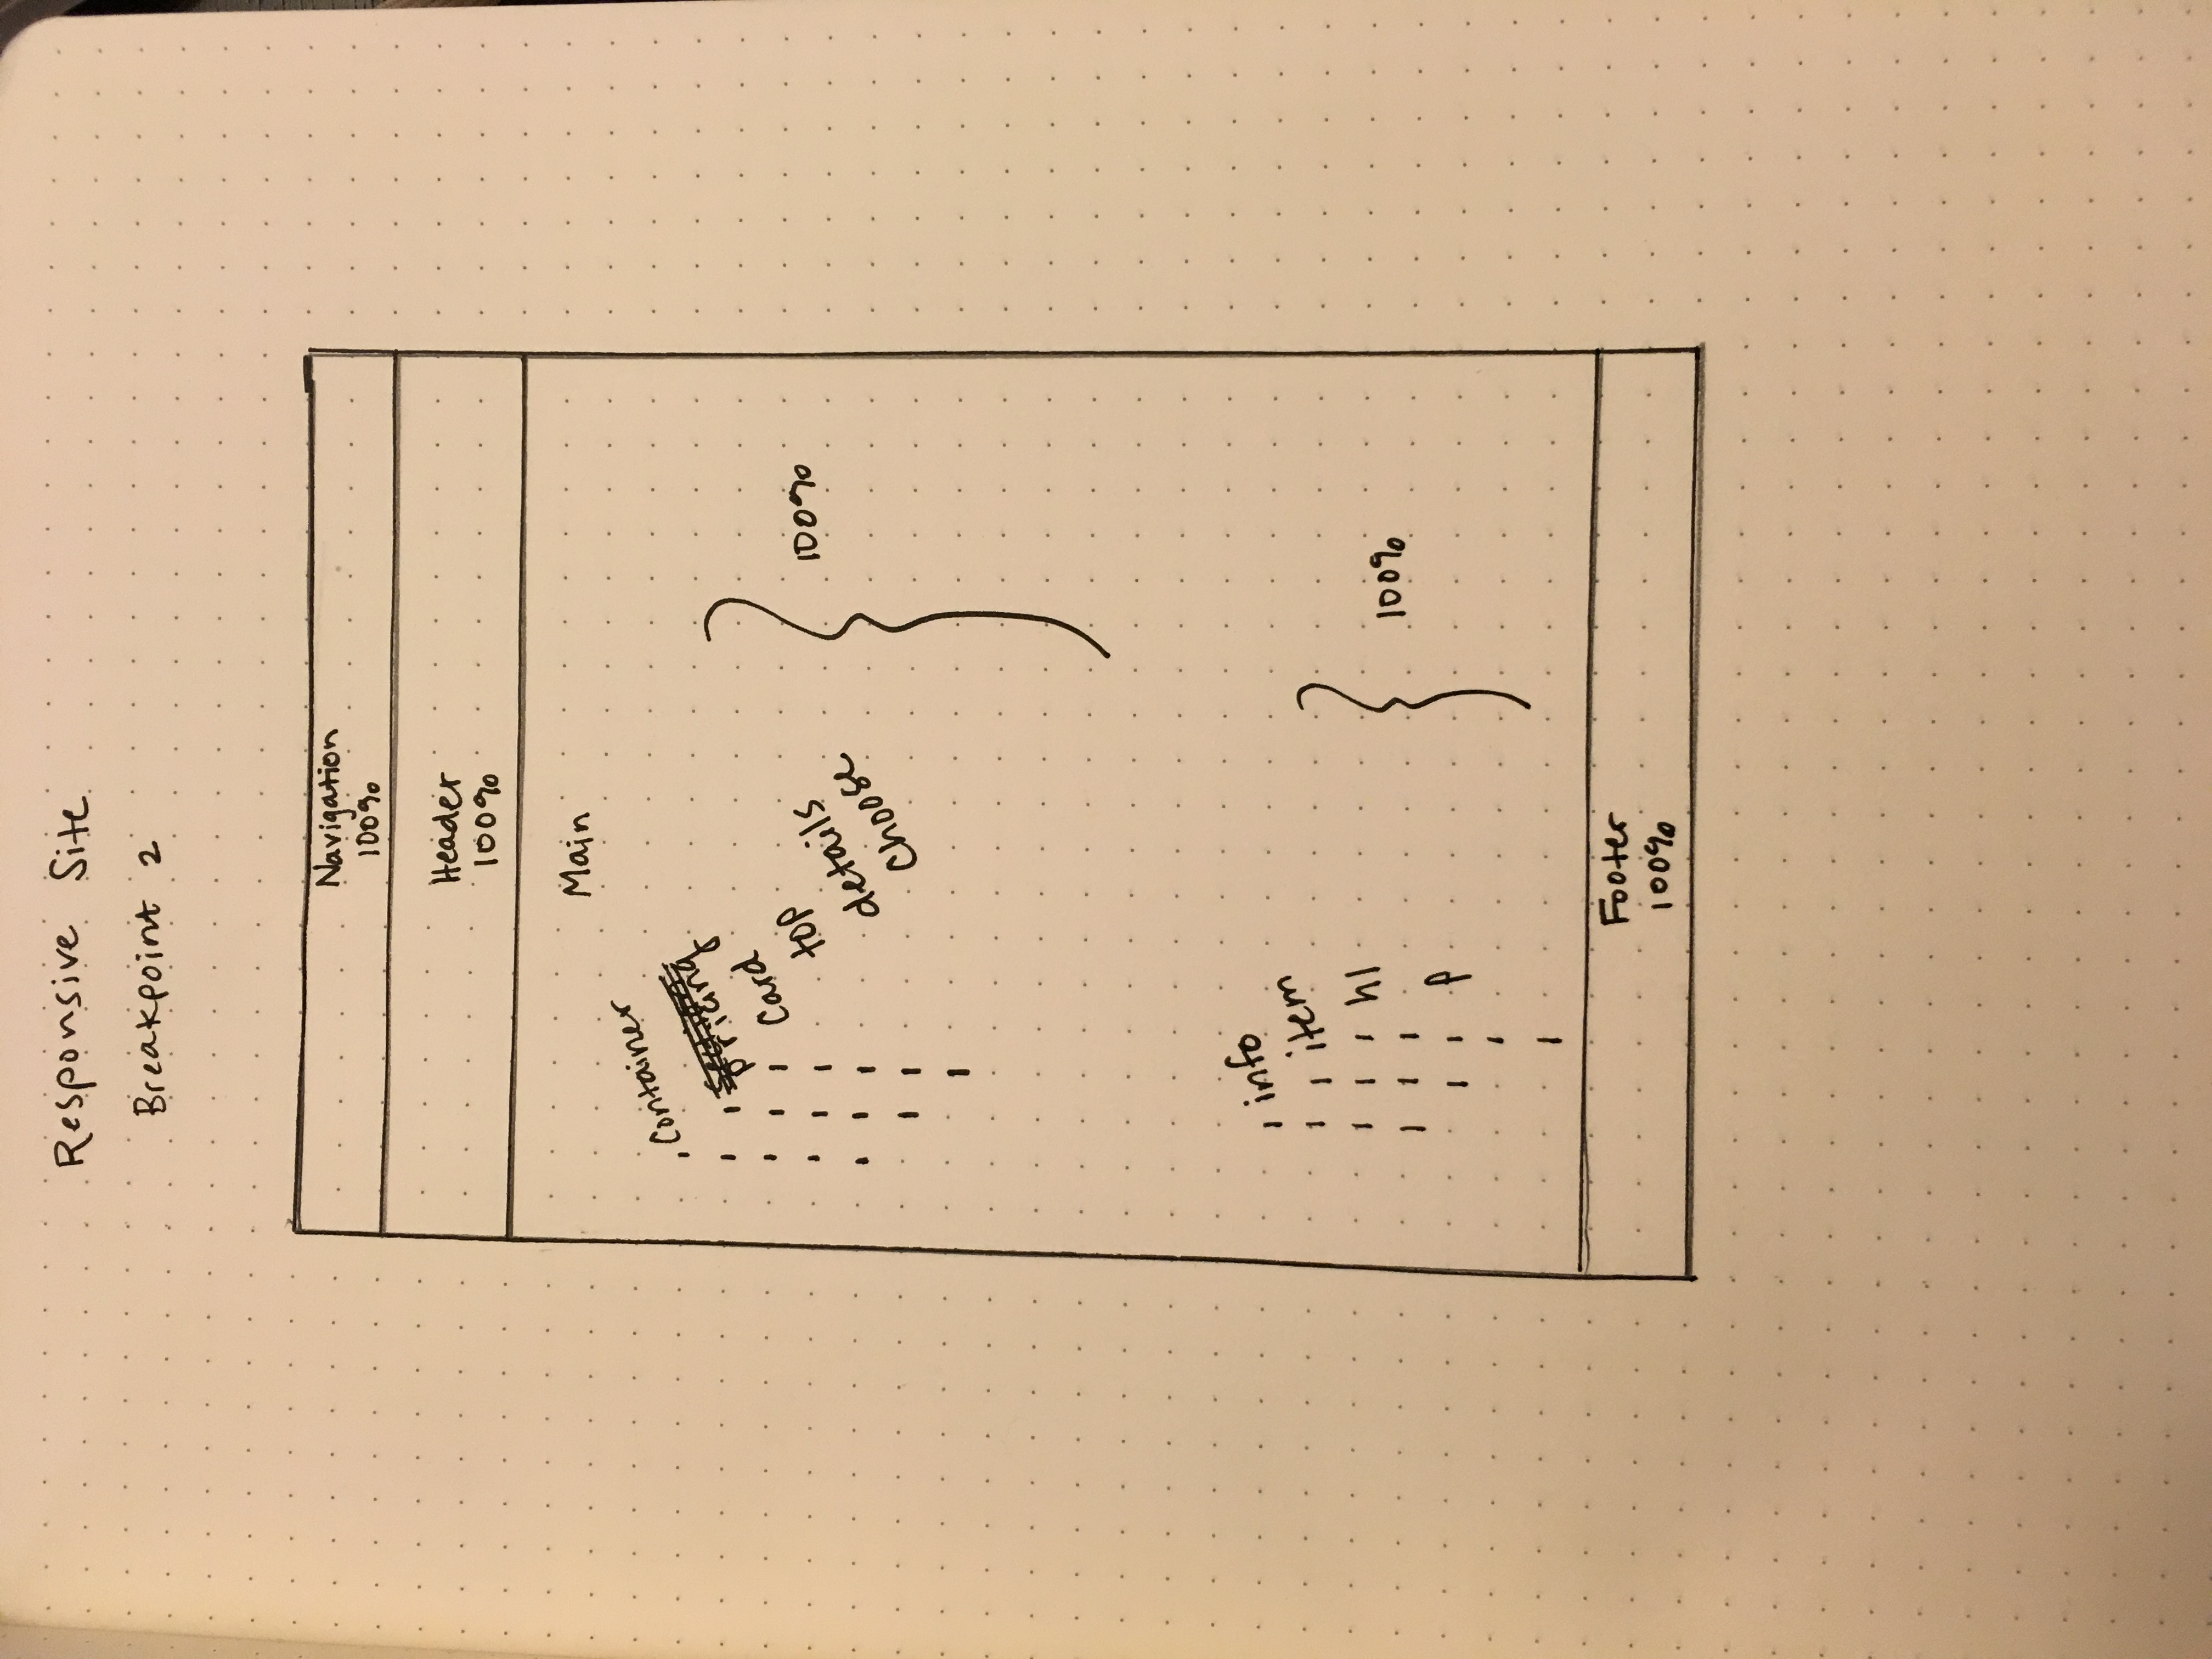 Responsive Site
Breakpoint 2
Navigation
100%
Header
100%
Main
Container
Section
pricing
Card
top
details
choose
100%
info
item
h1
p
100%
Footer
100%